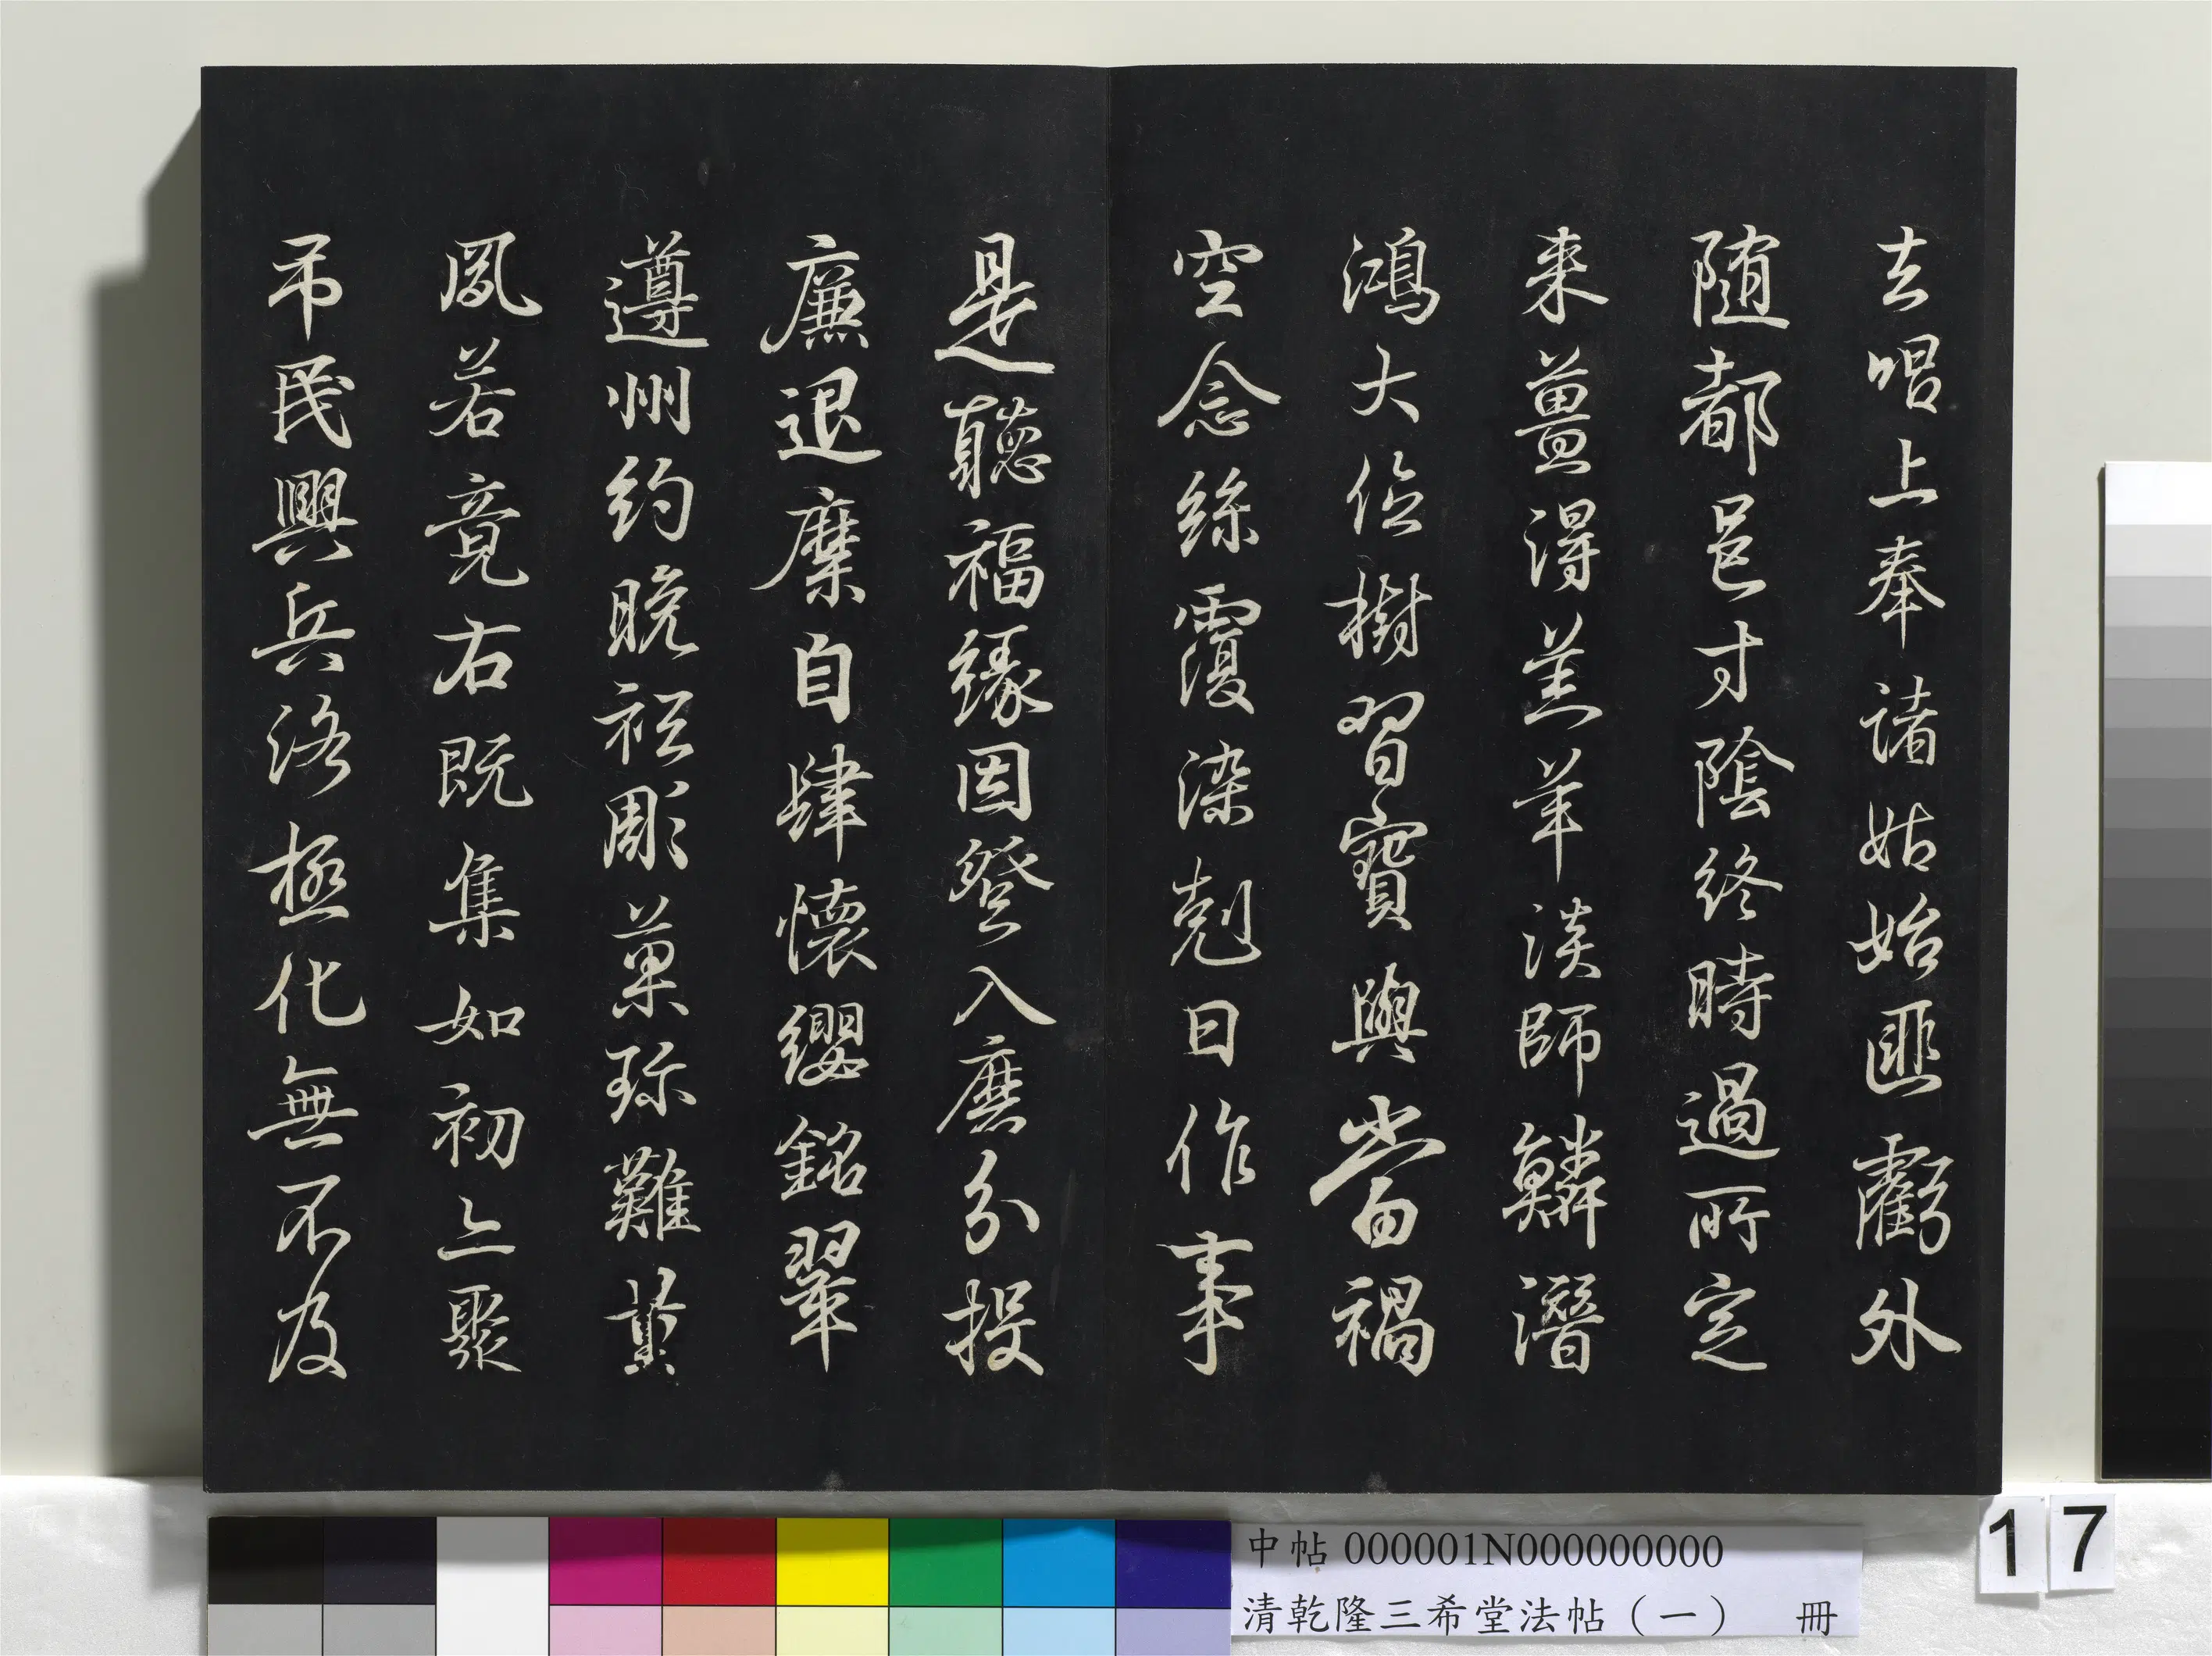 去唱上奉諸姑始匪虧外
随都邑寸陰終時過所定
来薑得羔羊淡師鱗潛
鴻大位樹習寶與當禍
空念絲覆染剋日作事
是聽福緣因登入庶分投
廉退糜自肆懷纓銘翠
遵州約晚祗彫菓珎難黃
夙若竟右既集如初上聚
吊民興兵洛極化無不及
中帖 000001N000000000
清乾隆三希堂法帖（一） 冊
17